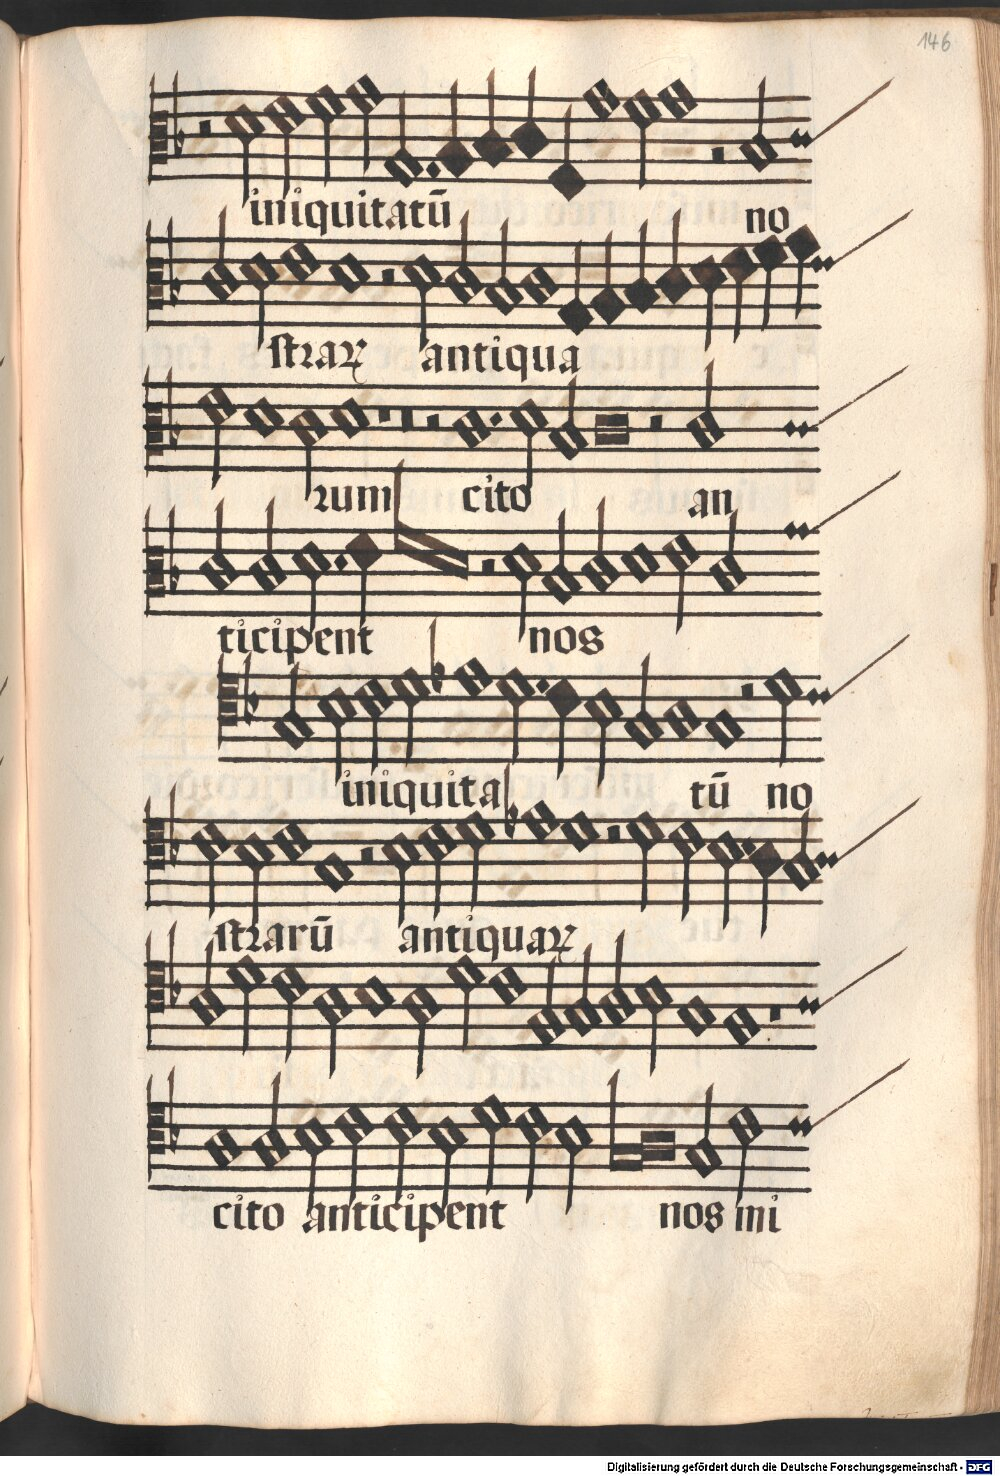 146
iniquitatū no
straꝝ antiqua
rum cito an
ticipent nos
iniquita tū no
strarū antiquaꝝ
cito anticipent nos mi
Digitalisierung gefördert durch die Deutsche Forschungsgemeinschaft - DFG